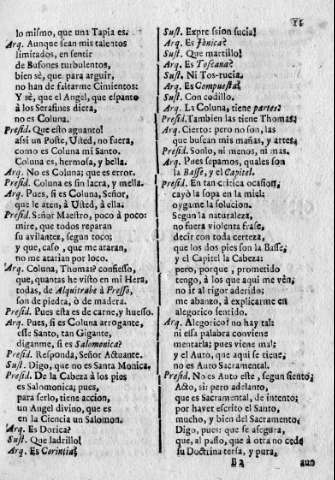 lo mismo, que una Tapia es.
Arq. Aunque sean mis talentos
limitados, en sentir
de Bufones turbulentos,
bien sè, que para arguir,
no han de faltarme Cimientos:
Y sè, que el Angel, que espanto
à los Serafines diera,
no es Coluna.
Presid. Que esto aguanto!
assi un Poste, Usted, no fuera,
como es Coluna mi Santo.
Coluna es, hermosa, y bella.
Arq. No es Coluna; que es error.
Presid. Coluna es sin lacra, y mella.
Arq. Pues, si es Coluna, Señor,
que le aten, à Usted, à ella.
Presid. Señor Maestro, poco à poco:
mire, que todos reparan
su avilantez, segun toco;
y que, caso, que me ataran,
no me atarian por loco.
Arq. Coluna, Thomas? confiesso,
que, quantas he visto en mi Hera,
todas, de Alquitrabe à Fresso,
son de piedra, ò de madera.
Presid. Pues esta es de carne, y huesso.
Arq. Pues, si es Coluna arrogante,
esse Santo, tan Gigante,
diganme, si es Salomonica?
Presid. Responda, Señor Actuante.
Sust. Digo, que no es Santa Monica.
Presid. De la Cabeza à los pies
es Salomonica; pues,
para serlo, tiene accion,
un Angel divino, que es
en la Ciencia un Salomon.
Arq. Es Dorica?
Sust. Que ladrillo!
Arq. Es Corintia?
Sust. Expression sucia!
Arq. Es Jonica?
Sust. Que martillo!
Arq. Es Toscana?
Sust. Ni Tos-rucia.
Arq. Es Compuesta?
Sust. Con codillo.
Arq. La Coluna, tiene partes?
Presid. Tambien las tiene Thomas;
Arq. Cierto: pero no son, las
que buscan mis mañas, y artes,
Presid. Sonlo, ni menos, ni mas.
Arq. Pues sepamos, quales son
la Basse, y el Capitel.
Presid. En tan critica ocasion,
cayò la sopa en la miel:
oygame la solucion.
Segun la naturaleza,
no fuera violenta frase,
decir con toda certeza,
que los dos pies son la Basse;
y el Capitel la Cabeza:
pero, porque, prometido
tengo, à los que aqui me vèn,
no ir al rigor aderido;
me abanzo, à explicarme en
alegorico sentido.
Arq. Alegorico? no hay tal:
ni essa palabra conviene
mentarla; pues viene mal;
y el Auto, que aqui se tiene,
no es Auto Sacramental.
Presid. No es Auto este, segun siento;
Acto, si: pero adelanto,
que es Sacramental, de intento;
por haver escrito el Santo,
mucho, y bien del Sacramento.
Digo, pues: que se assegura,
que, al passo, que à otra no cede
su Doctrina tersa, y pura,
B2 aun